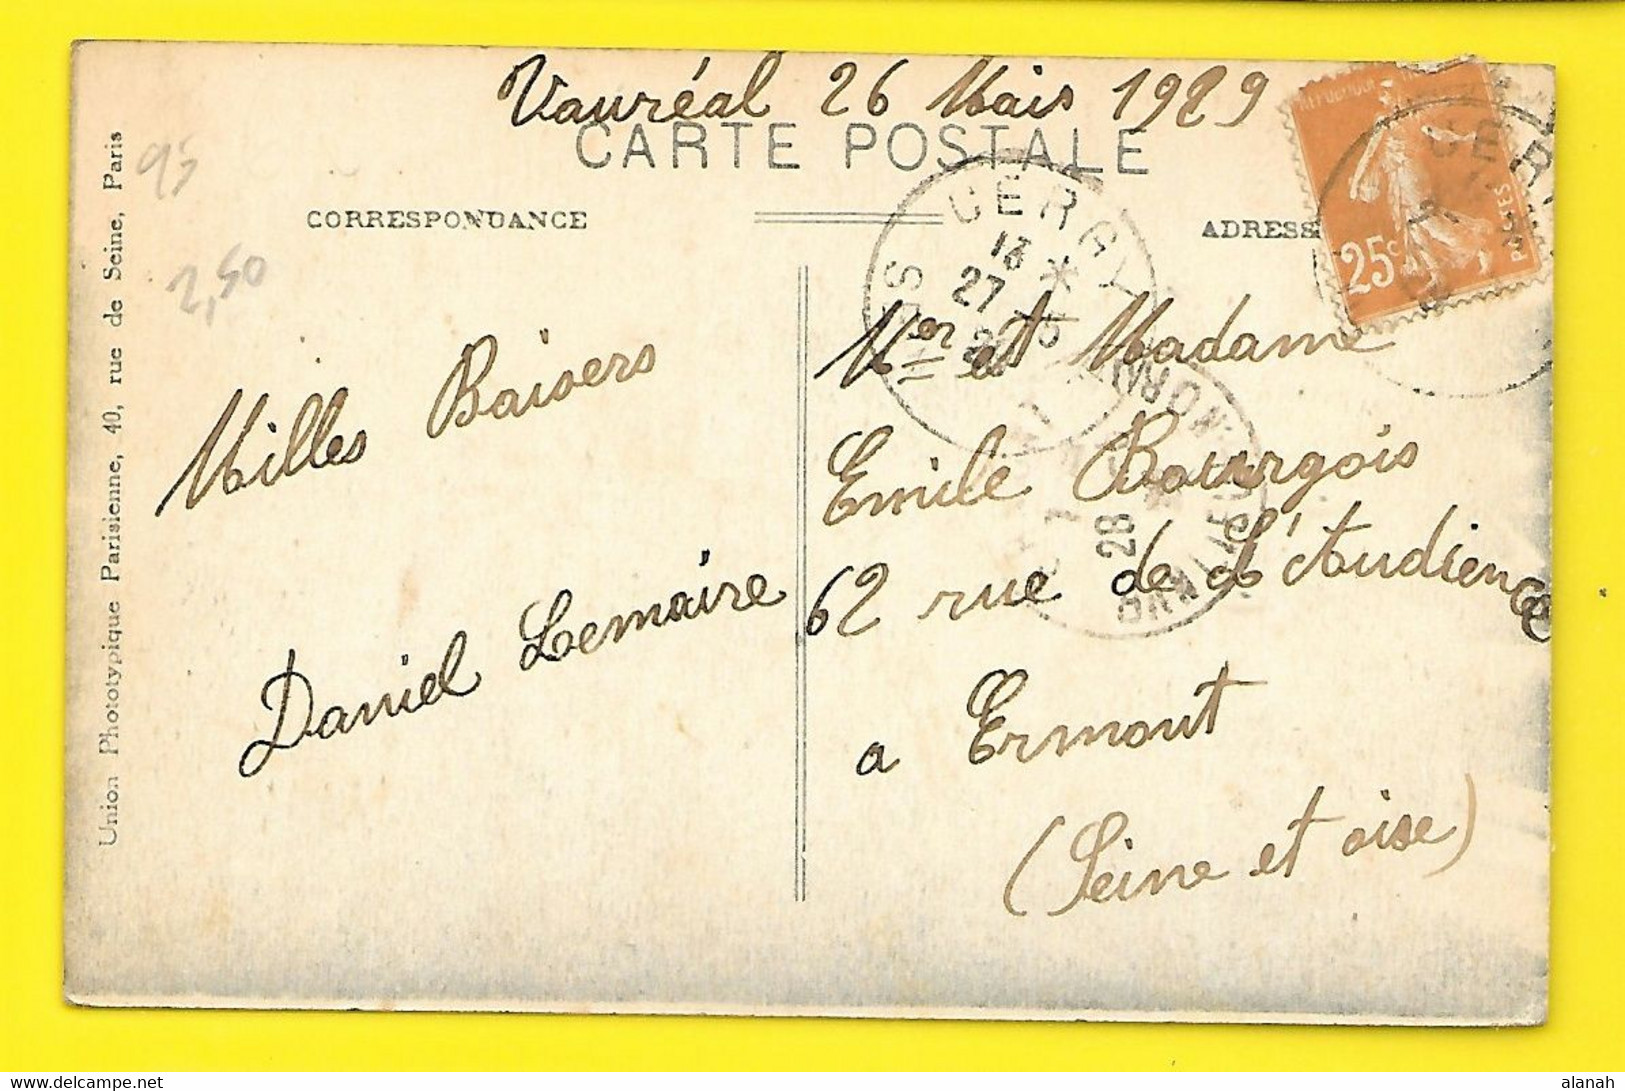 Vauréal 26 Mais 1929
CARTE POSTALE
CORRESPONDANCE
ADRESS
95
2,50
Union Phototypique Parisienne, 40, rue de Seine, Paris
REPUBLIQUE
25c
POSTES
CERGY
27
28
Milles Baisers
Daniel Lemaire
Mr et Madame
Emile Bourgois
62 rue de L'Audience
a Ermont
(Seine et oise)
alanah